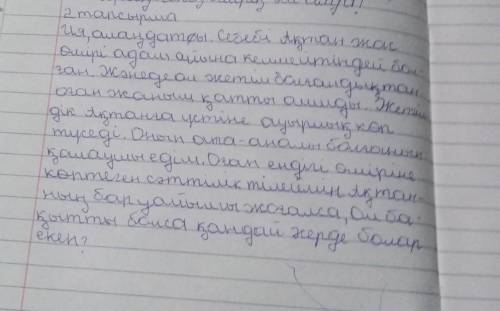 2 тапсырма
Ия, алаңдатты. Себебі Ақтан жас
өмірі адам ойына келмейтіндей бол-
ған. Және де ол жетім болғандықтан
оған жаным қатты ашиды. Жетім-
дік Ақтанға үстіне ауырлық көп
түседі. Оның ата-анасы болғанын
қалаушы едім. Оған ендігі өміріне
көптеген сәттілік тілеймін. Ақтан-
ның бар уайымы жоғалса, Ол ба-
қытты болса қандай жерде болар
екен?